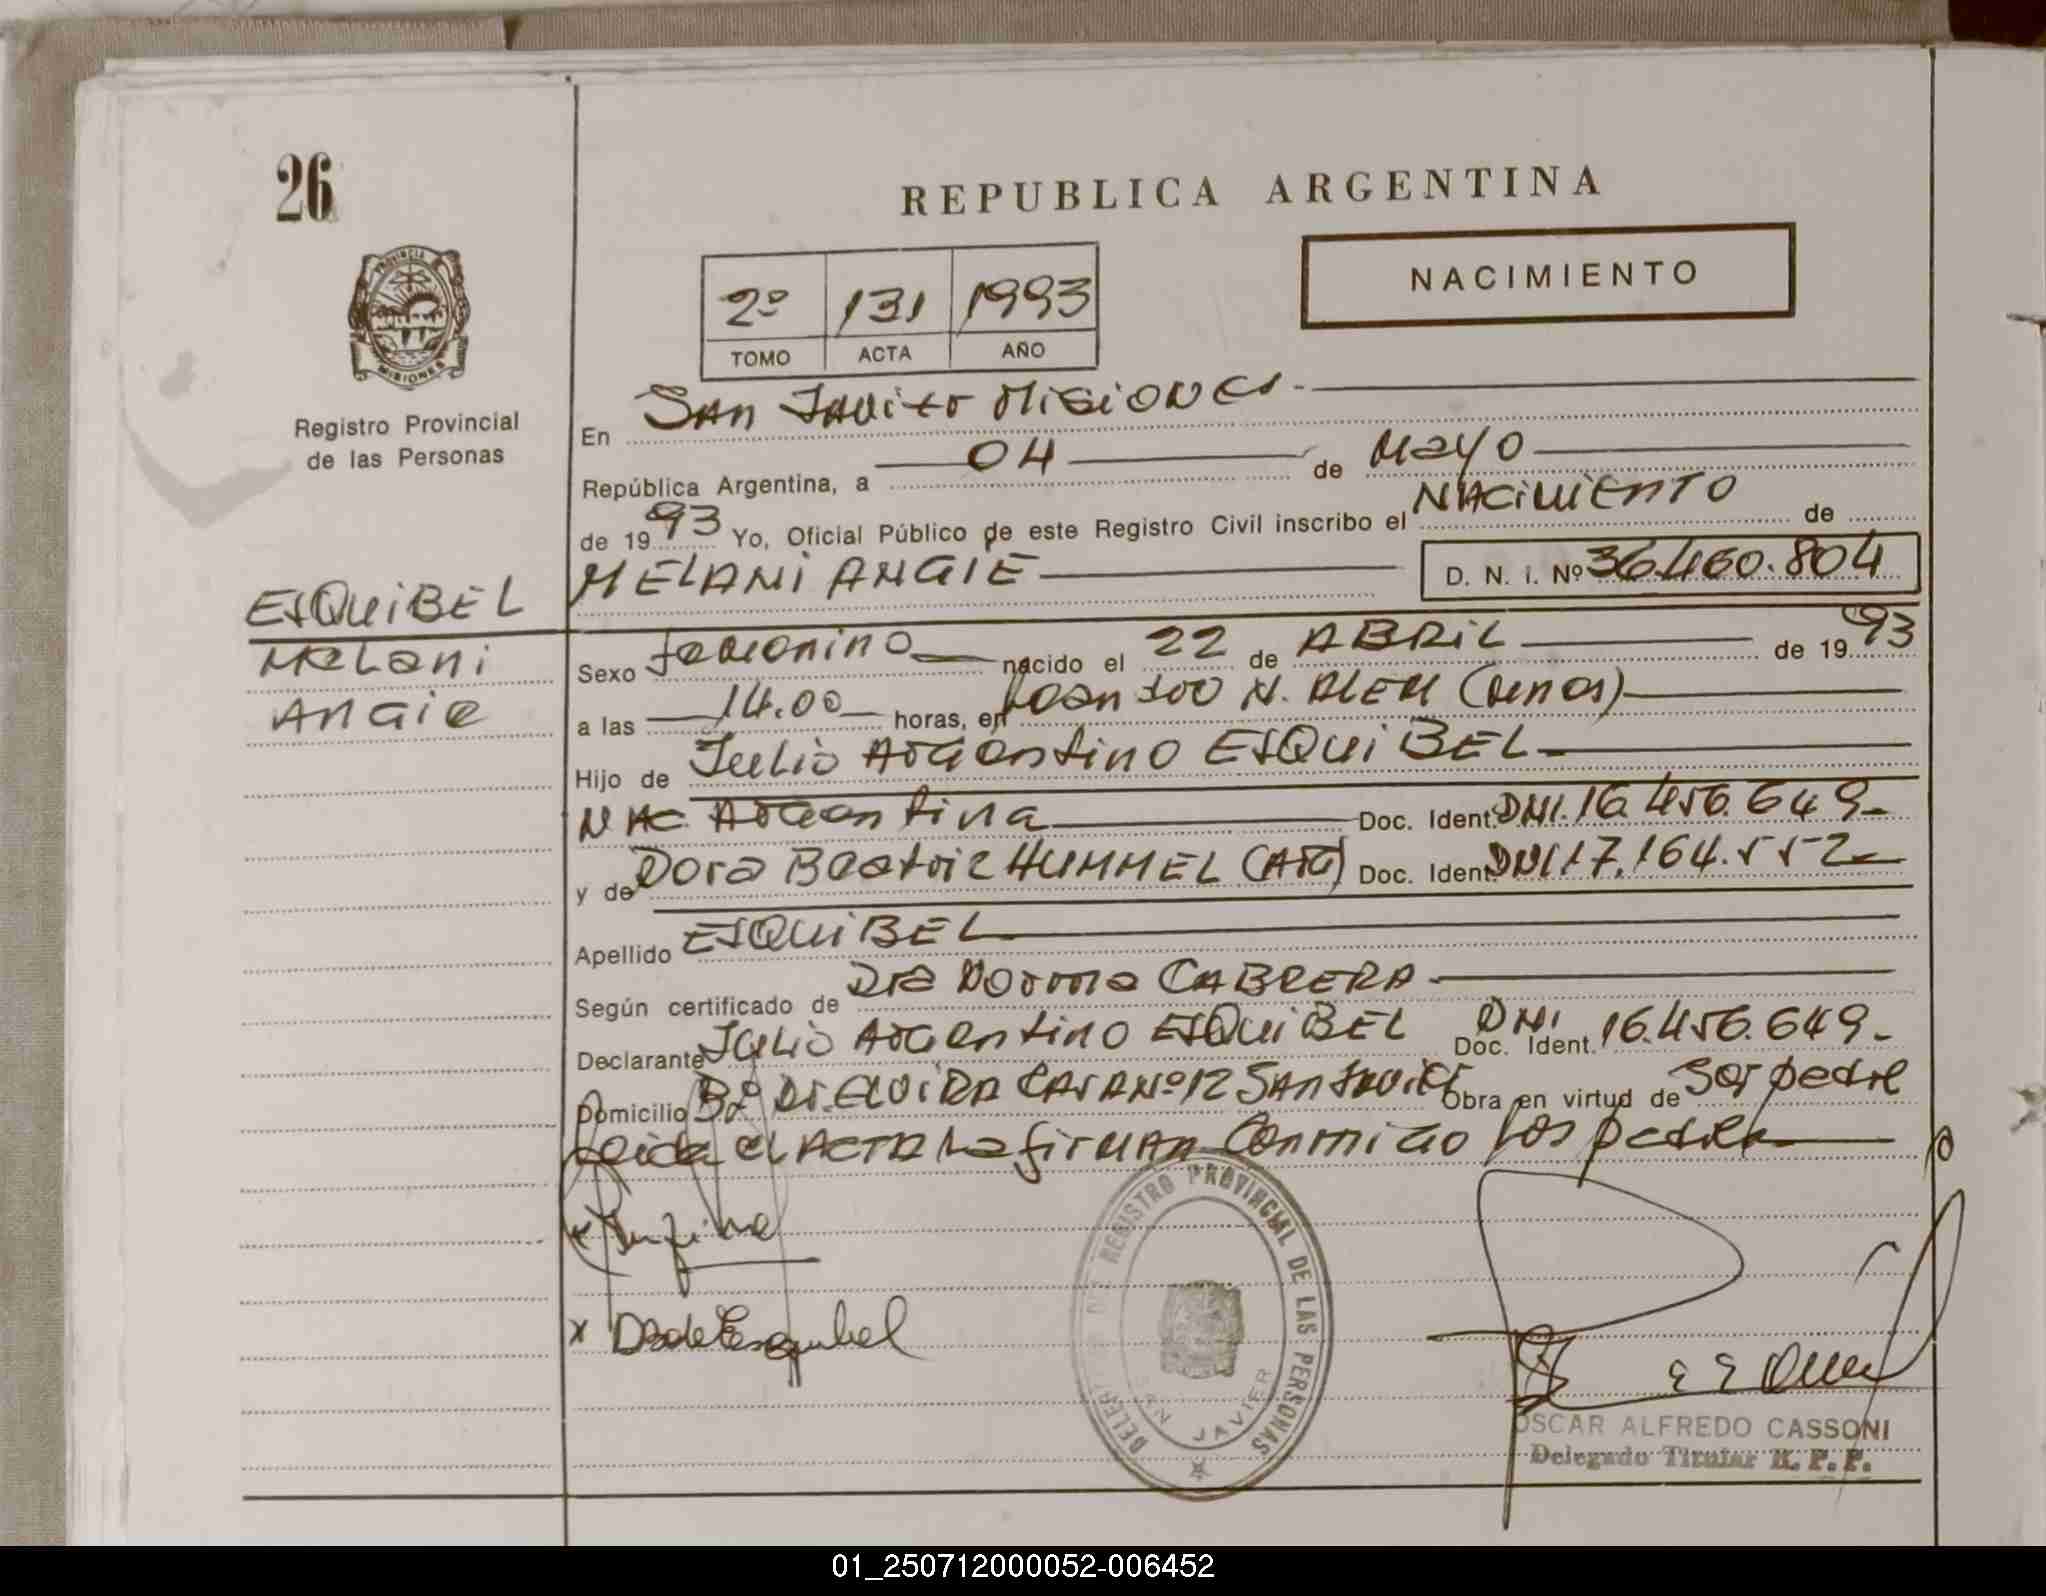 26
REPUBLICA ARGENTINA
NACIMIENTO
2º 131 1993
TOMO ACTA AÑO
PROVINCIA
MISIONES
Registro Provincial
de las Personas
En San Javier Misiones
República Argentina, a 04 de Mayo
de 1993 Yo, Oficial Público de este Registro Civil inscribo el Nacimiento de
MELANI ANGIE D. N. i. Nº 36.460.804
ESQUIBEL
Melani
Angie
Sexo Femenino nacido el 22 de ABRIL de 1993
a las 14.00 horas, en N. ALEM
Hijo de Julio Argentino ESQUIBEL
NAC Argentina Doc. Ident. DNI. 16.456.649
y de Dora Beatriz HUMMEL (ARG) Doc. Ident. DNI 17.164.552
Apellido ESQUIBEL
Según certificado de Dra Norma CABRERA
Declarante Julio Argentino ESQUIBEL Doc. Ident. DNI 16.456.649
Domicilio Bº ELVIRA CASA Nº 12 San Javier Obra en virtud de Ser padre
Leida el ACTA La firman Conmigo los padres
x D de Esquibel
DELEG REGISTRO PROVINCIAL DE LAS PERSONAS
SAN JAVIER
OSCAR ALFREDO CASSONI
Delegado Titular R. P. P.
01_250712000052-006452